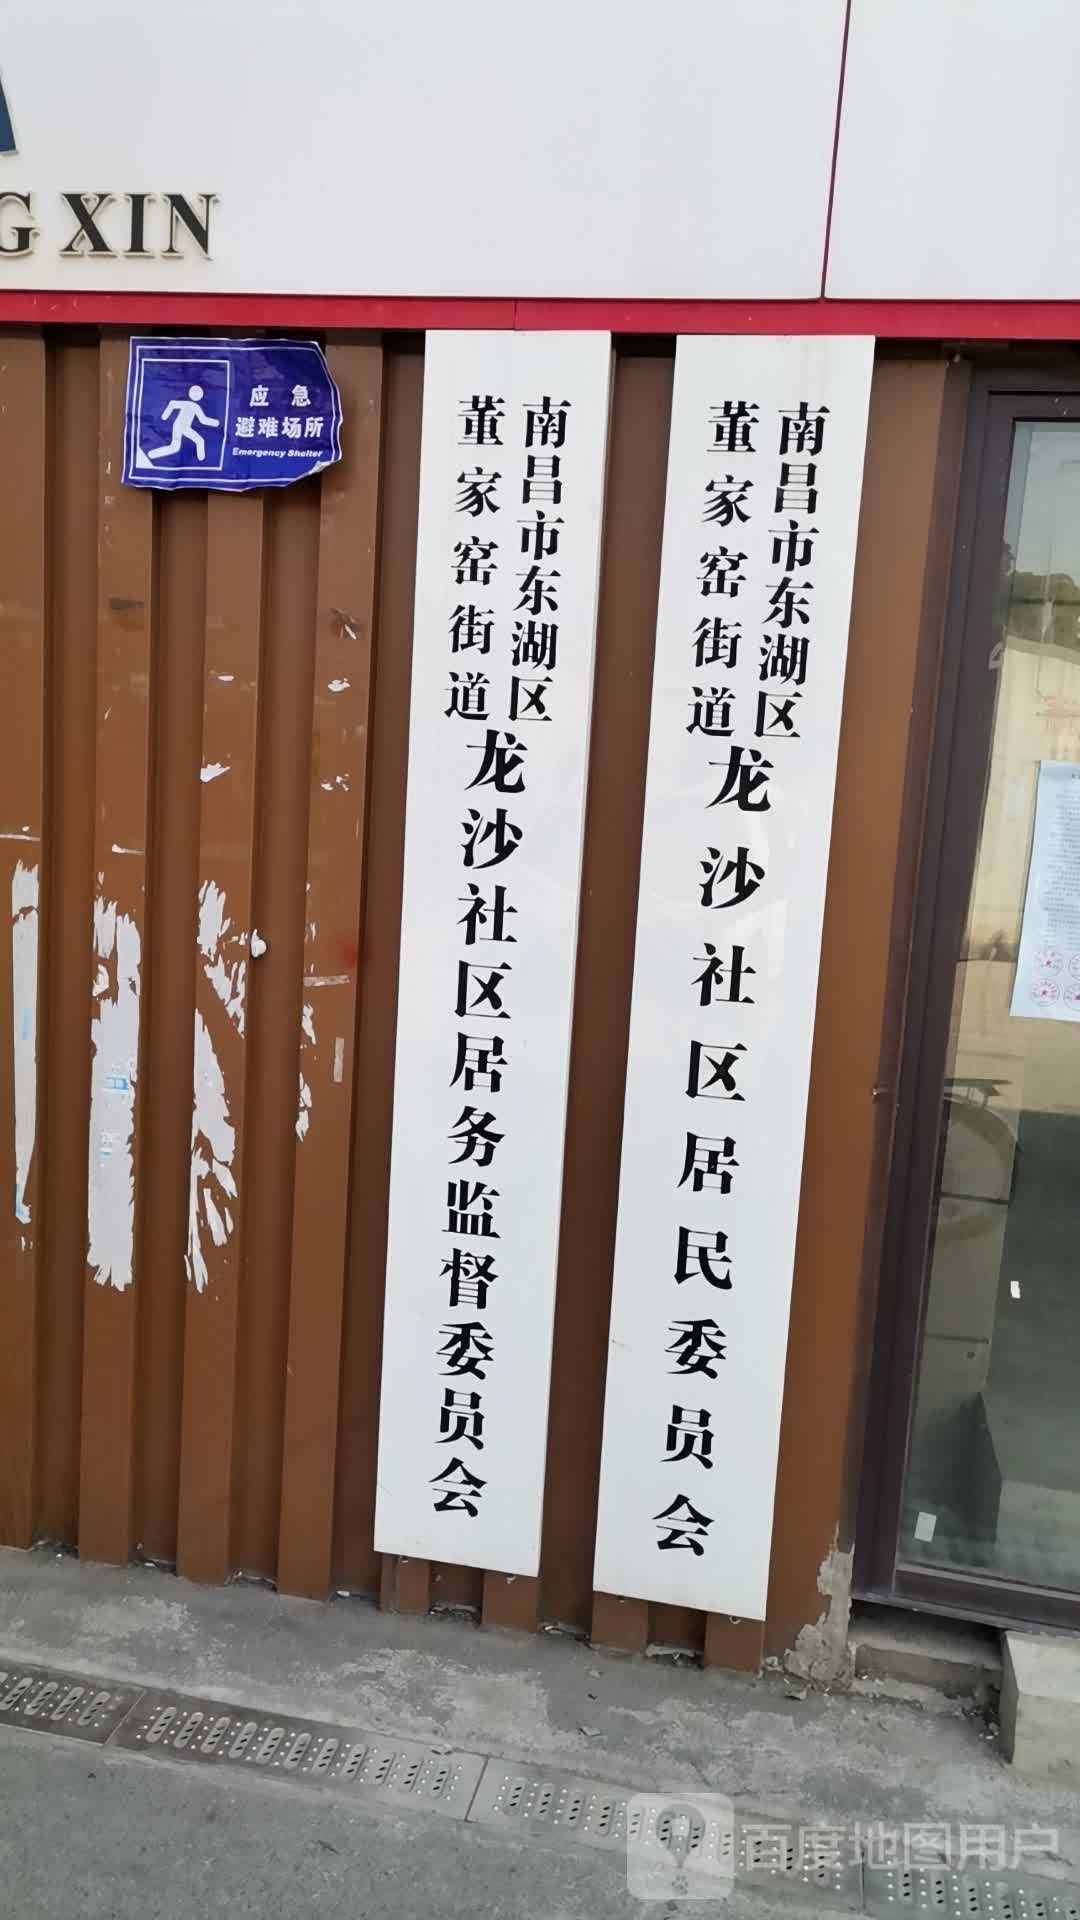 G XIN
应急
避难场所
Emergency Shelter
南昌市东湖区
董家窑街道
龙沙社区居务监督委员会
南昌市东湖区
董家窑街道
龙沙社区居民委员会
百度地图用户